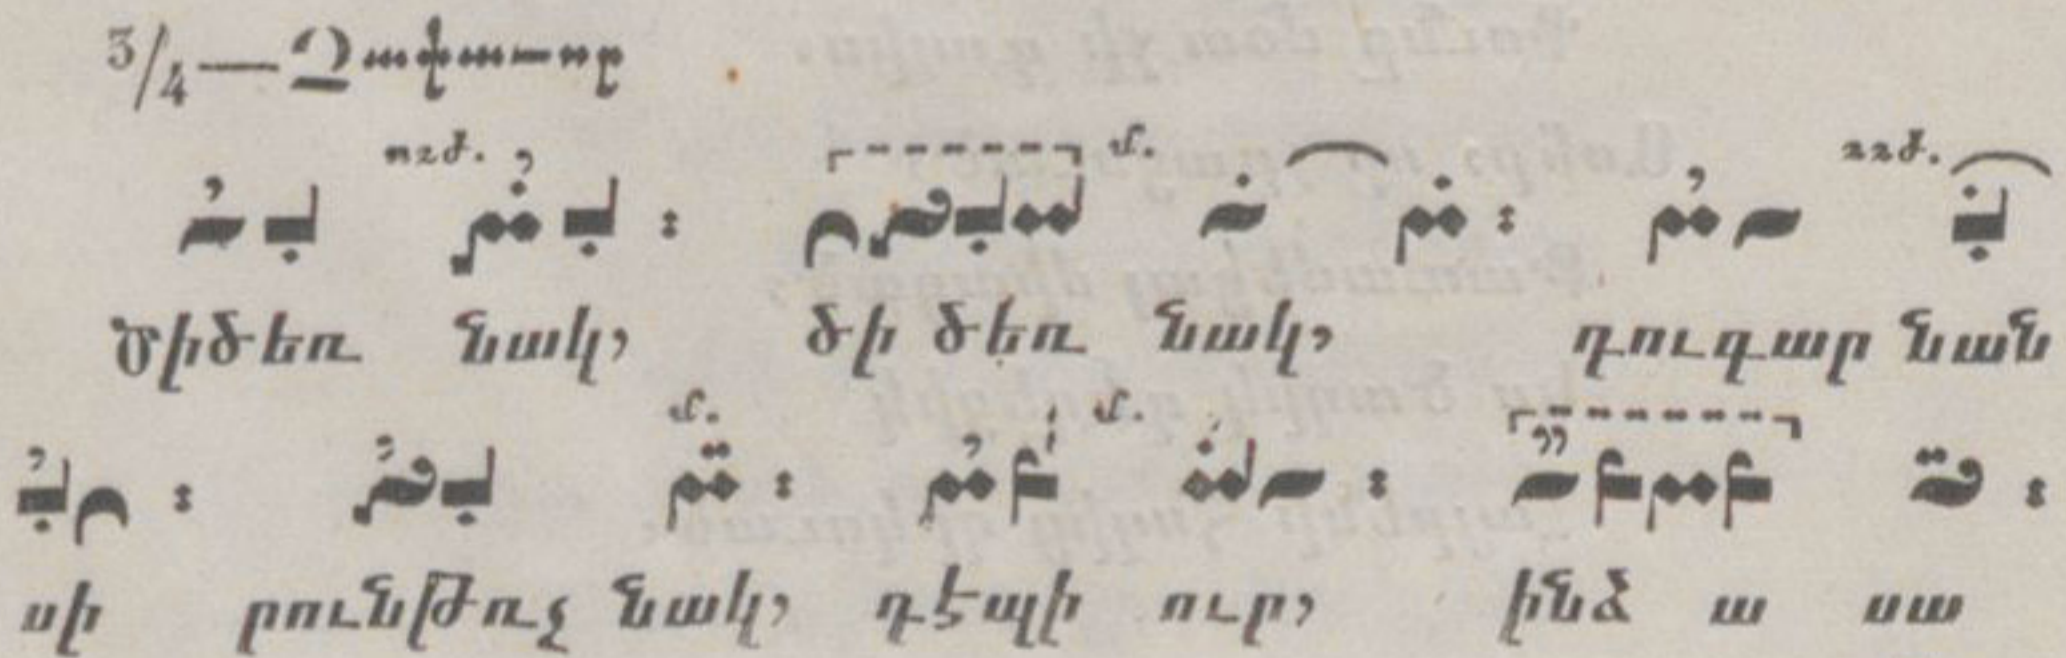 3/4—Չափաւոր
ոշժ. մ. շշժ.
Ծիծեռ նակ, ծի ծեռ նակ, դուգար նան
մ. մ.
սի րունթռչ նակ, դէպի ուր, ինձ ա սա